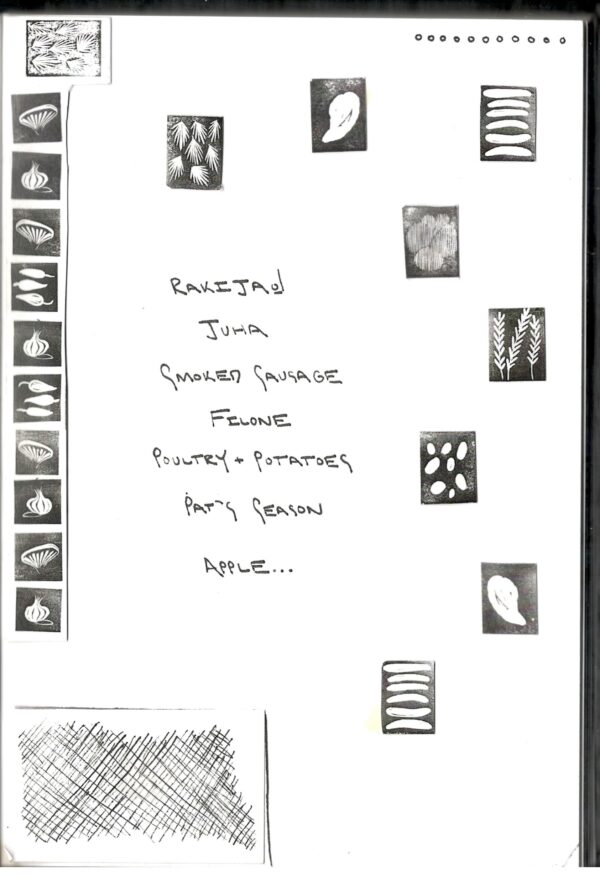 RAKIJA
JUHA
SMOKED SAUSAGE
FELONE
POULTRY + POTATOES
PAT'S SEASON
APPLE...